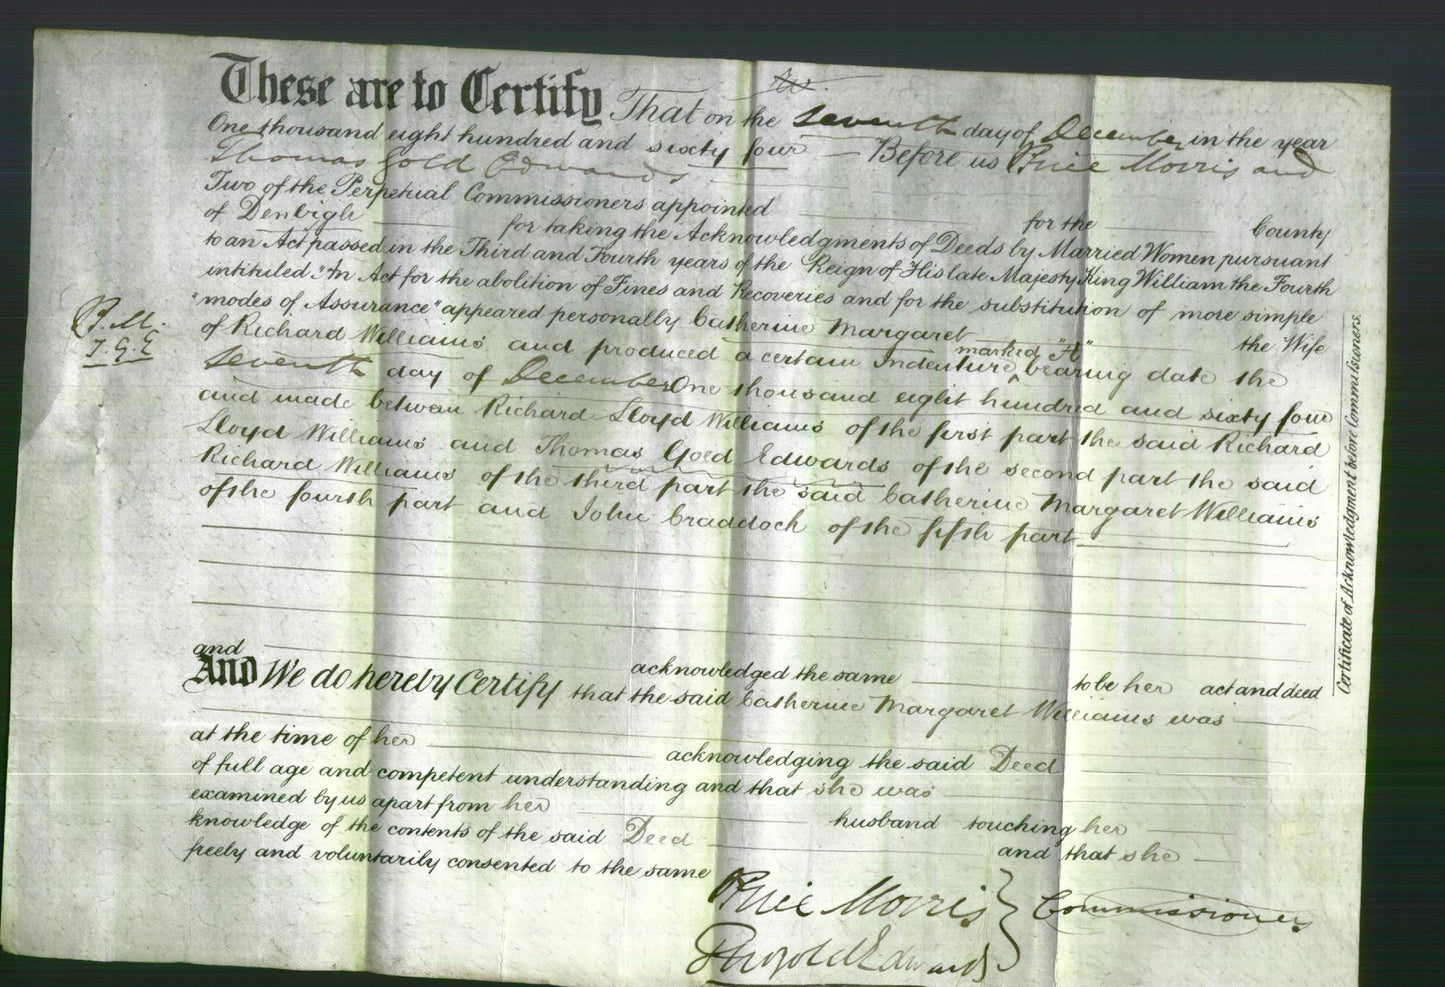 These are to Certify That on the seventh day of December in the year
One thousand eight hundred and sixty four Before us Price Morris and
Thomas Gold Edwards
Two of the Perpetual Commissioners appointed for the County
of Denbigh for taking the Acknowledgments of Deeds by Married Women pursuant
to an Act passed in the Third and Fourth years of the Reign of His late Majesty King William the Fourth
intituled "An Act for the abolition of Fines and Recoveries and for the substitution of more simple
"modes of Assurance" appeared personally Catherine Margaret the Wife
of Richard Williams and produced a certain Indenture marked "A" bearing date the
seventh day of December One thousand eight hundred and sixty four
and made between Richard Lloyd Williams of the first part the said Richard
Lloyd Williams and Thomas Goed Edwards of the second part the said
Richard Williams of the third part the said Catherine Margaret Williams
of the fourth part and John Craddock of the fifth part
and acknowledged the same to be her act and deed
And We do hereby Certify that the said Catherine Margaret Williams was
at the time of her acknowledging the said Deed
of full age and competent understanding and that she was
examined by us apart from her husband touching her
knowledge of the contents of the said Deed and that she
freely and voluntarily consented to the same
Price Morris
Thos Gold Edwards
Commissioners
P.M.
T.G.E
Certificate of Acknowledgment before Commissioners.